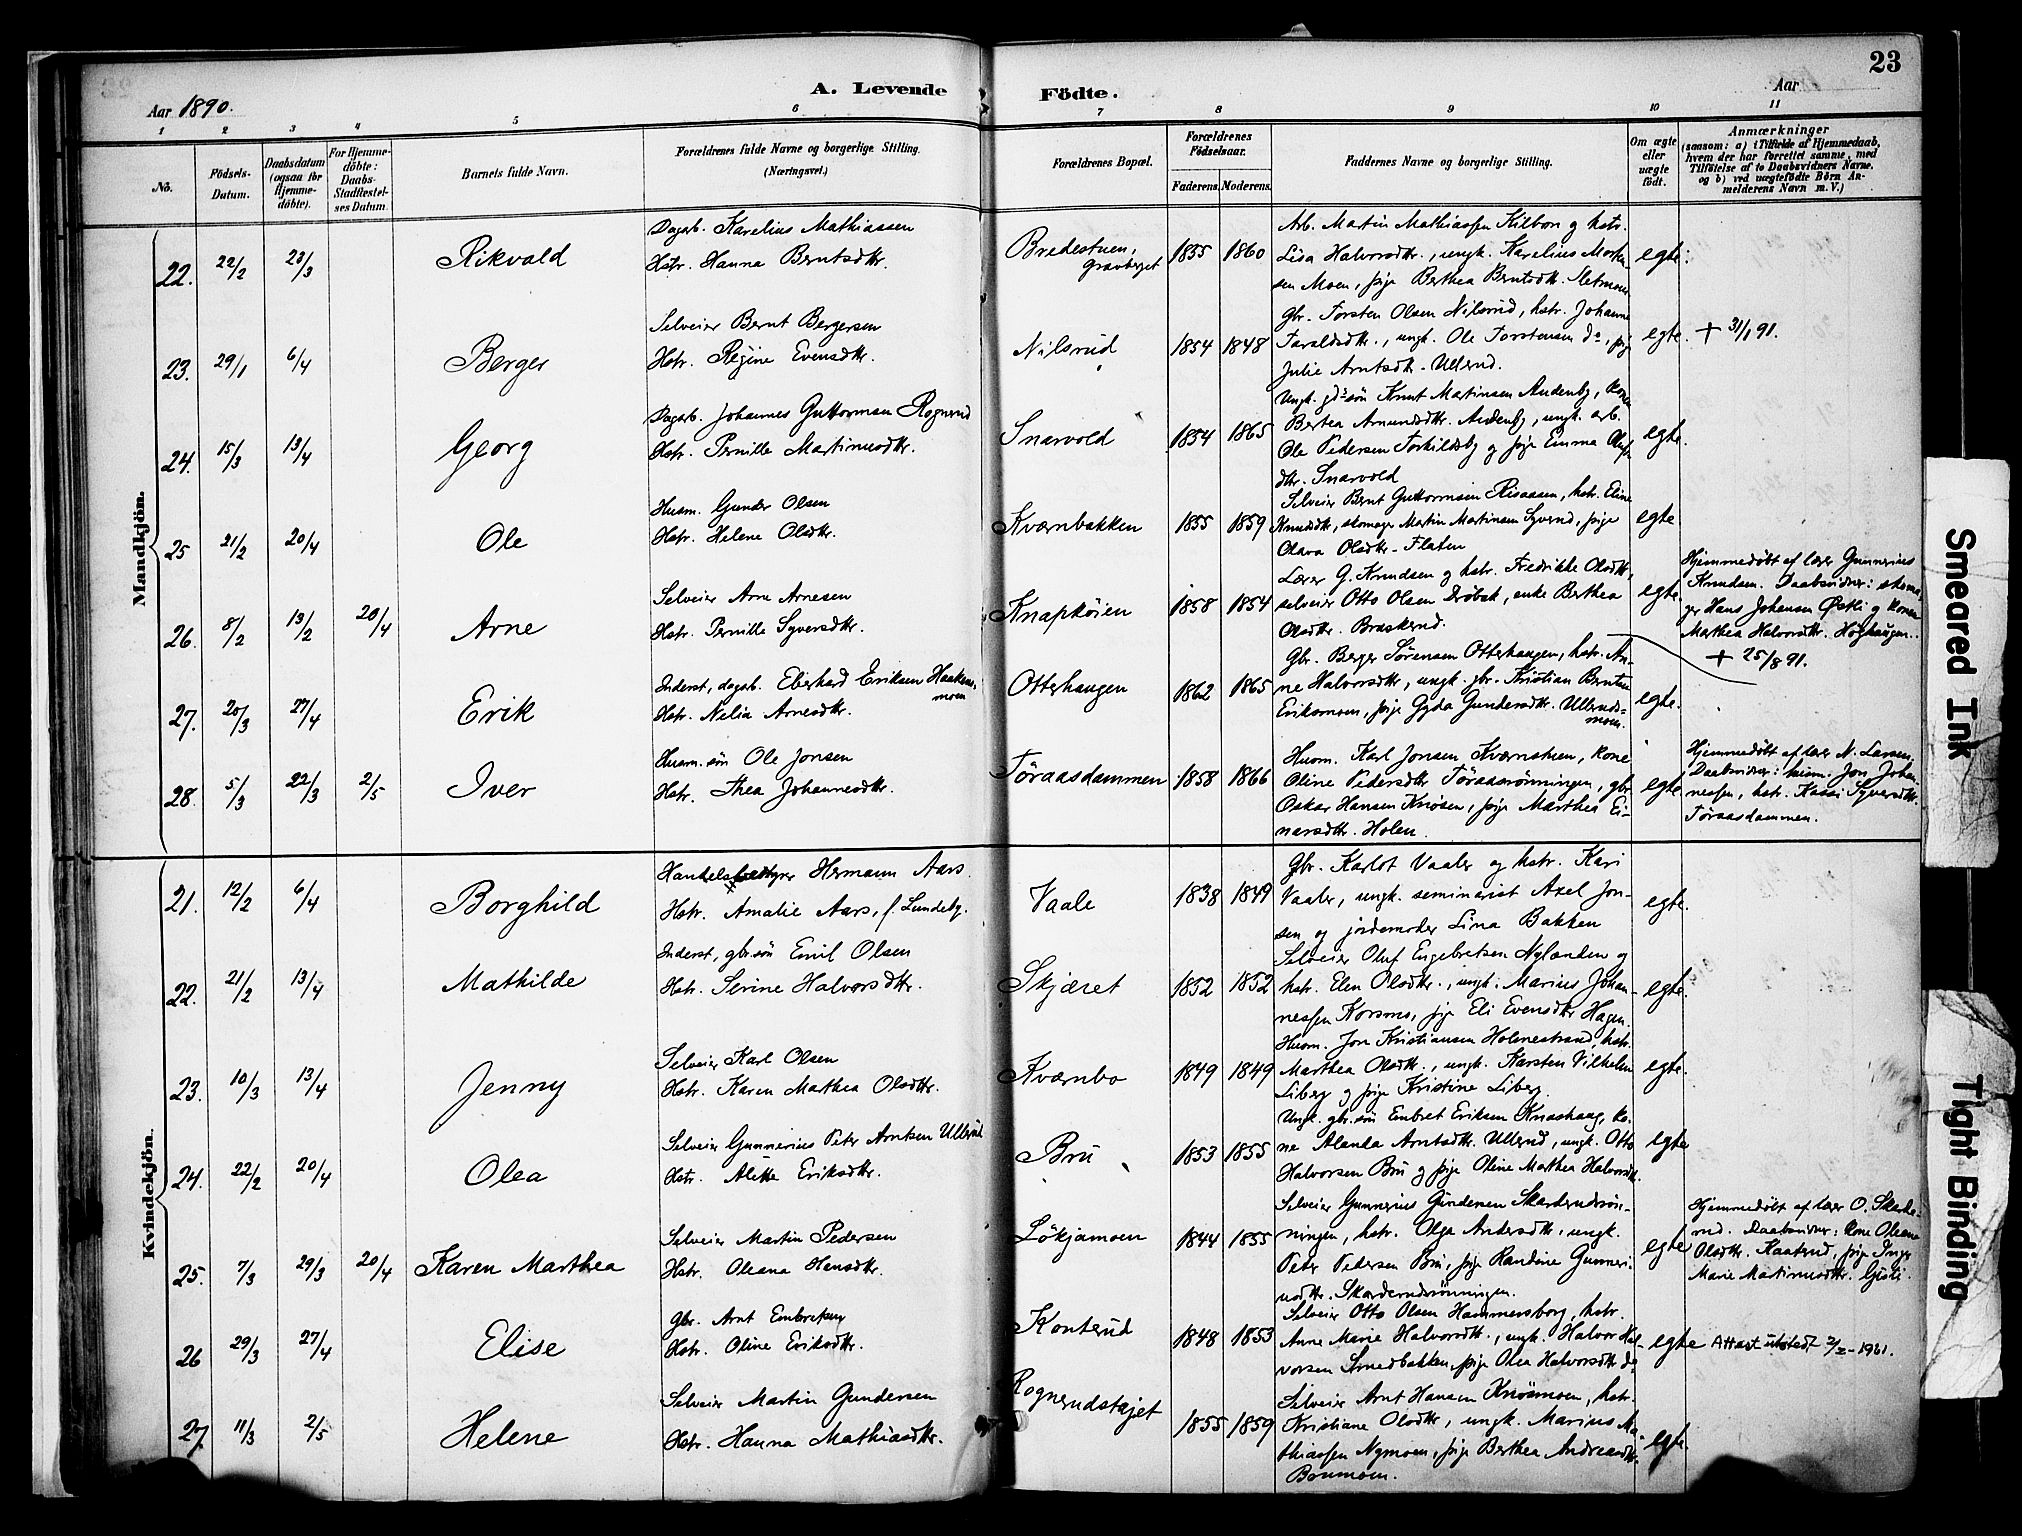 23
A. Levende Födte.
Aar 1890.
Aar
1 2 3 4 5 6 7 8 9 10 11
No.
Födsels-Datum.
Daabsdatum (ogsaa for Hjemme-döbte).
For Hjemme-döbte: Daabs-Stadfæstel-ses Datum.
Barnets fulde Navn.
Forældrenes fulde Navne og borgerlige Stilling. (Næringsvei.)
Forældrenes Bopæl.
Forældrenes Födselsaar.
Faderens. Moderens.
Faddernes Navne og borgerlige Stilling.
Om ægte eller uægte födt.
Anmærkninger (saasom: a) i Tilfælde af Hjemmedaab, hvem der har forrettet samme, med Tilföielse af to Daabsvidners Navne. og b) ved uægtefödte Börn An-melderens Navn m. V.)
Mandkjön.
22. 22/2 23/3 Rikvald
Dagarb. Karelius Mathiassen
Hstr. Hanna Berntsdtr.
Bredestuen, Gravberget 1855 1860
Arb. Martin Mathiassen Kilbon g hstr.
Lisa Halvorsdtr., ungk. Karelius Morten-
sen Moen, pige Berthea Berntsdtr. Sletmoen
egte.
23. 29/1 6/4 Berger
Selveier Bernt Bergersen
Hstr. Regine Evensdtr.
Nilsrud 1854 1848
Gbr. Torsten Olsen Nilsrud, hstr. Johanne
Taraldsdtr., ungk. Ole Torstensen do, pige
Julie Arntsdtr. Ullerud.
egte. + 31/1 91.
24. 15/3 13/4 Georg
Dagarb. Johannes Guttormsen Rognerud
Hstr. Pernille Martinusdtr.
Snarvold 1854 1865
Ungk. gdssön Knut Martinsen Audenby, kone
Bertea Amundsdtr. Audenby, ungk. arb.
Ole Pedersen Torkildsby g pige Emma Olufs
dtr. Snarvold
egte.
25 21/2 20/4 Ole
Husm. Gunder Olsen
Hstr. Helene Olsdtr.
Kværnbakken 1855 1859
Selveier Bernt Guttormsen Risaasen, hstr. Eline
Knudsdtr, skomager Martin Martinsen Syverud, pige
Olava Olsdtr. Flaten
egte
26. 8/2 13/2 20/4 Arne
Selveier Arne Arnesen
Hstr. Pernille Syversdtr.
Knapköien 1858 1854
Lærer G. Knudsen g hstr. Fredrikke Olsdtr,
selveier Otto Olsen Dröbak, enke Berthea
Olsdtr. Braskerud.
egte.
Hjemmedöbt af lærer Gunnerius
Knudsen. Daabsvidner: skoma-
ger Hans Johansen Østli g konen
Marthea Halvorsdtr. Höghaugen.
+ 25/8 91.
27. 20/3 27/4 Erik
Inderst, dagarb. Eberhard Eriksen Haakens-
moen
Hstr. Nilia Arnesdtr.
Otterhaugen 1862 1865
Gbr. Berger Sörensen Otterhaugen, hstr. An-
ne Halvorsdtr., ungk. gbr. Kristian Berntsen
Eriksmoen, pige Gyda Gundersdtr. Ulleruds-
moen.
egte.
28. 5/3 22/3 2/5 Iver
Husm.sön Ole Jonsen
Hstr. Thea Johannesdtr.
Töraasdammen 1858 1866
Husm. Karl Jonsen Kværnstuen, kone
Oline Pedersdtr Töraasrönningen, gbr.
Oskar Hansen Knösen, pige Marthea Ei-
narsdtr. Holen.
egte.
Hjemmedöbt af lærer N. Larsen,
Daabsvidner: husm. Jon Johan-
nessen, hstr. Kassi Syversdtr.
Töraasdammen.
Kvindekjön.
21. 12/2 6/4 Borghild
Handelsbestyrer Hermann Aars
Hstr. Amalie Aars, f. Lundeby.
Vaale 1838 1849
Gbr. Karlot Vaaler og hstr. Kari
Vaaler, ungk. seminarist Axel Jon-
sen og jordemoder Lina Bakken
egte.
22. 21/2 13/4 Mathilde
Inderst, gbr.sön Emil Olsen
Hstr. Serine Halvorsdtr.
Skjæret 1852 1852
Selveier Oluf Engebretsen Nylanden og
hstr. Elen Olsdtr., ungk. Marius Johan-
nessen Korsmo, pige Eli Evensdtr Hagen.
egte.
23. 10/3 13/4 Jenny
Selveier Karl Olsen
Hstr. Karen Mathea Olsdtr.
Kværnbo 1849 1849
Husm. Jon Kristiansen Holmestrand, hstr.
Marthea Olsdtr., ungk. Karsten Vilhelm
Liberg g pige Kristine Liberg.
egte.
24. 22/2 20/4 Olea
Selveier Gunnerius Peter Arntsen Ullerud
Hstr. Alette Eriksdtr.
Bru 1853 1855
Ungk. gbr.sön Embret Eriksen Knashaug, ko-
ne Alanda Arntsdtr. Ullerud, ungk. Otto
Halvorsen Bru g pige Oline Marthea Halvorsdtr.
egte
25. 7/3 29/3 20/4 Karen Marthea
Selveier Martin Pedersen
Hstr. Oleana Hansdtr.
Lökjamoen 1844 1855
Selveier Gunnerius Gundersen Skarderudsrön-
ningen, hstr. Olga Andersdtr., ungk.
Peter Pedersen Bru, pige Randine Gunneri-
usdtr. Skarderudsrönningen.
egte
Hjemmedöbt af lærer O. Skarde-
rud. Daabsvidner: kone Oleana
Olsdtr. Kaatrud, pige Inger
Marie Martinusdtr. Gjsti.
26 29/3 27/4 Elise
Gbr. Arnt Embretsen
Hstr. Oline Eriksdtr.
Konterud 1848 1853
Selveier Otto Olsen Hammersborg, hstr.
Anne Marie Halvorsdtr., ungk. Halvor Hal-
vorsen Smedbakken, pige Olea Halvorsdtr do
egte Attest utstedt 2/X-1961.
27. 11/3 2/5 Helene
Selveier Martin Gundersen
Hstr. Hanna Mathiasdtr.
Rognerudstajet 1855 1859
Selveier Arnt Hansen Knösmoen, hstr.
Kristiane Olsdtr, ungk. Marius Ma-
thiassen Nymoen, pige Berthea Andreasdtr.
Bonmoen.
egte.
Smeared Ink
Tight Binding